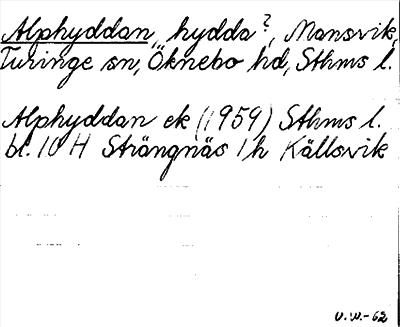 Alphyddan, hydda?, Mansvik,
Turinge sn, Öknebo hd, Sthms l.
Alphyddan ek (1959) Sthms l.
bl. 10 H Strängnäs 1h Källsvik
U.W.-62